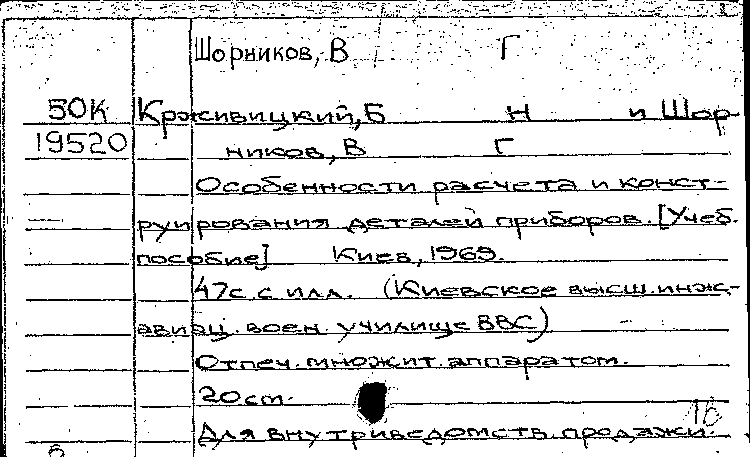 Шорников, В Г
50К Крживицкий, Б Н и Шор-
19520 ников, В Г
Особенности расчета и конст-
руирования деталей приборов. [Учеб.
пособие] Киев, 1969.
47с. с илл. (Киевское высш. инж.-
авиац. воен. училище ВВС)
Отпеч. множит. аппаратом.
20см.
16
Для внутриведомств. продажи.